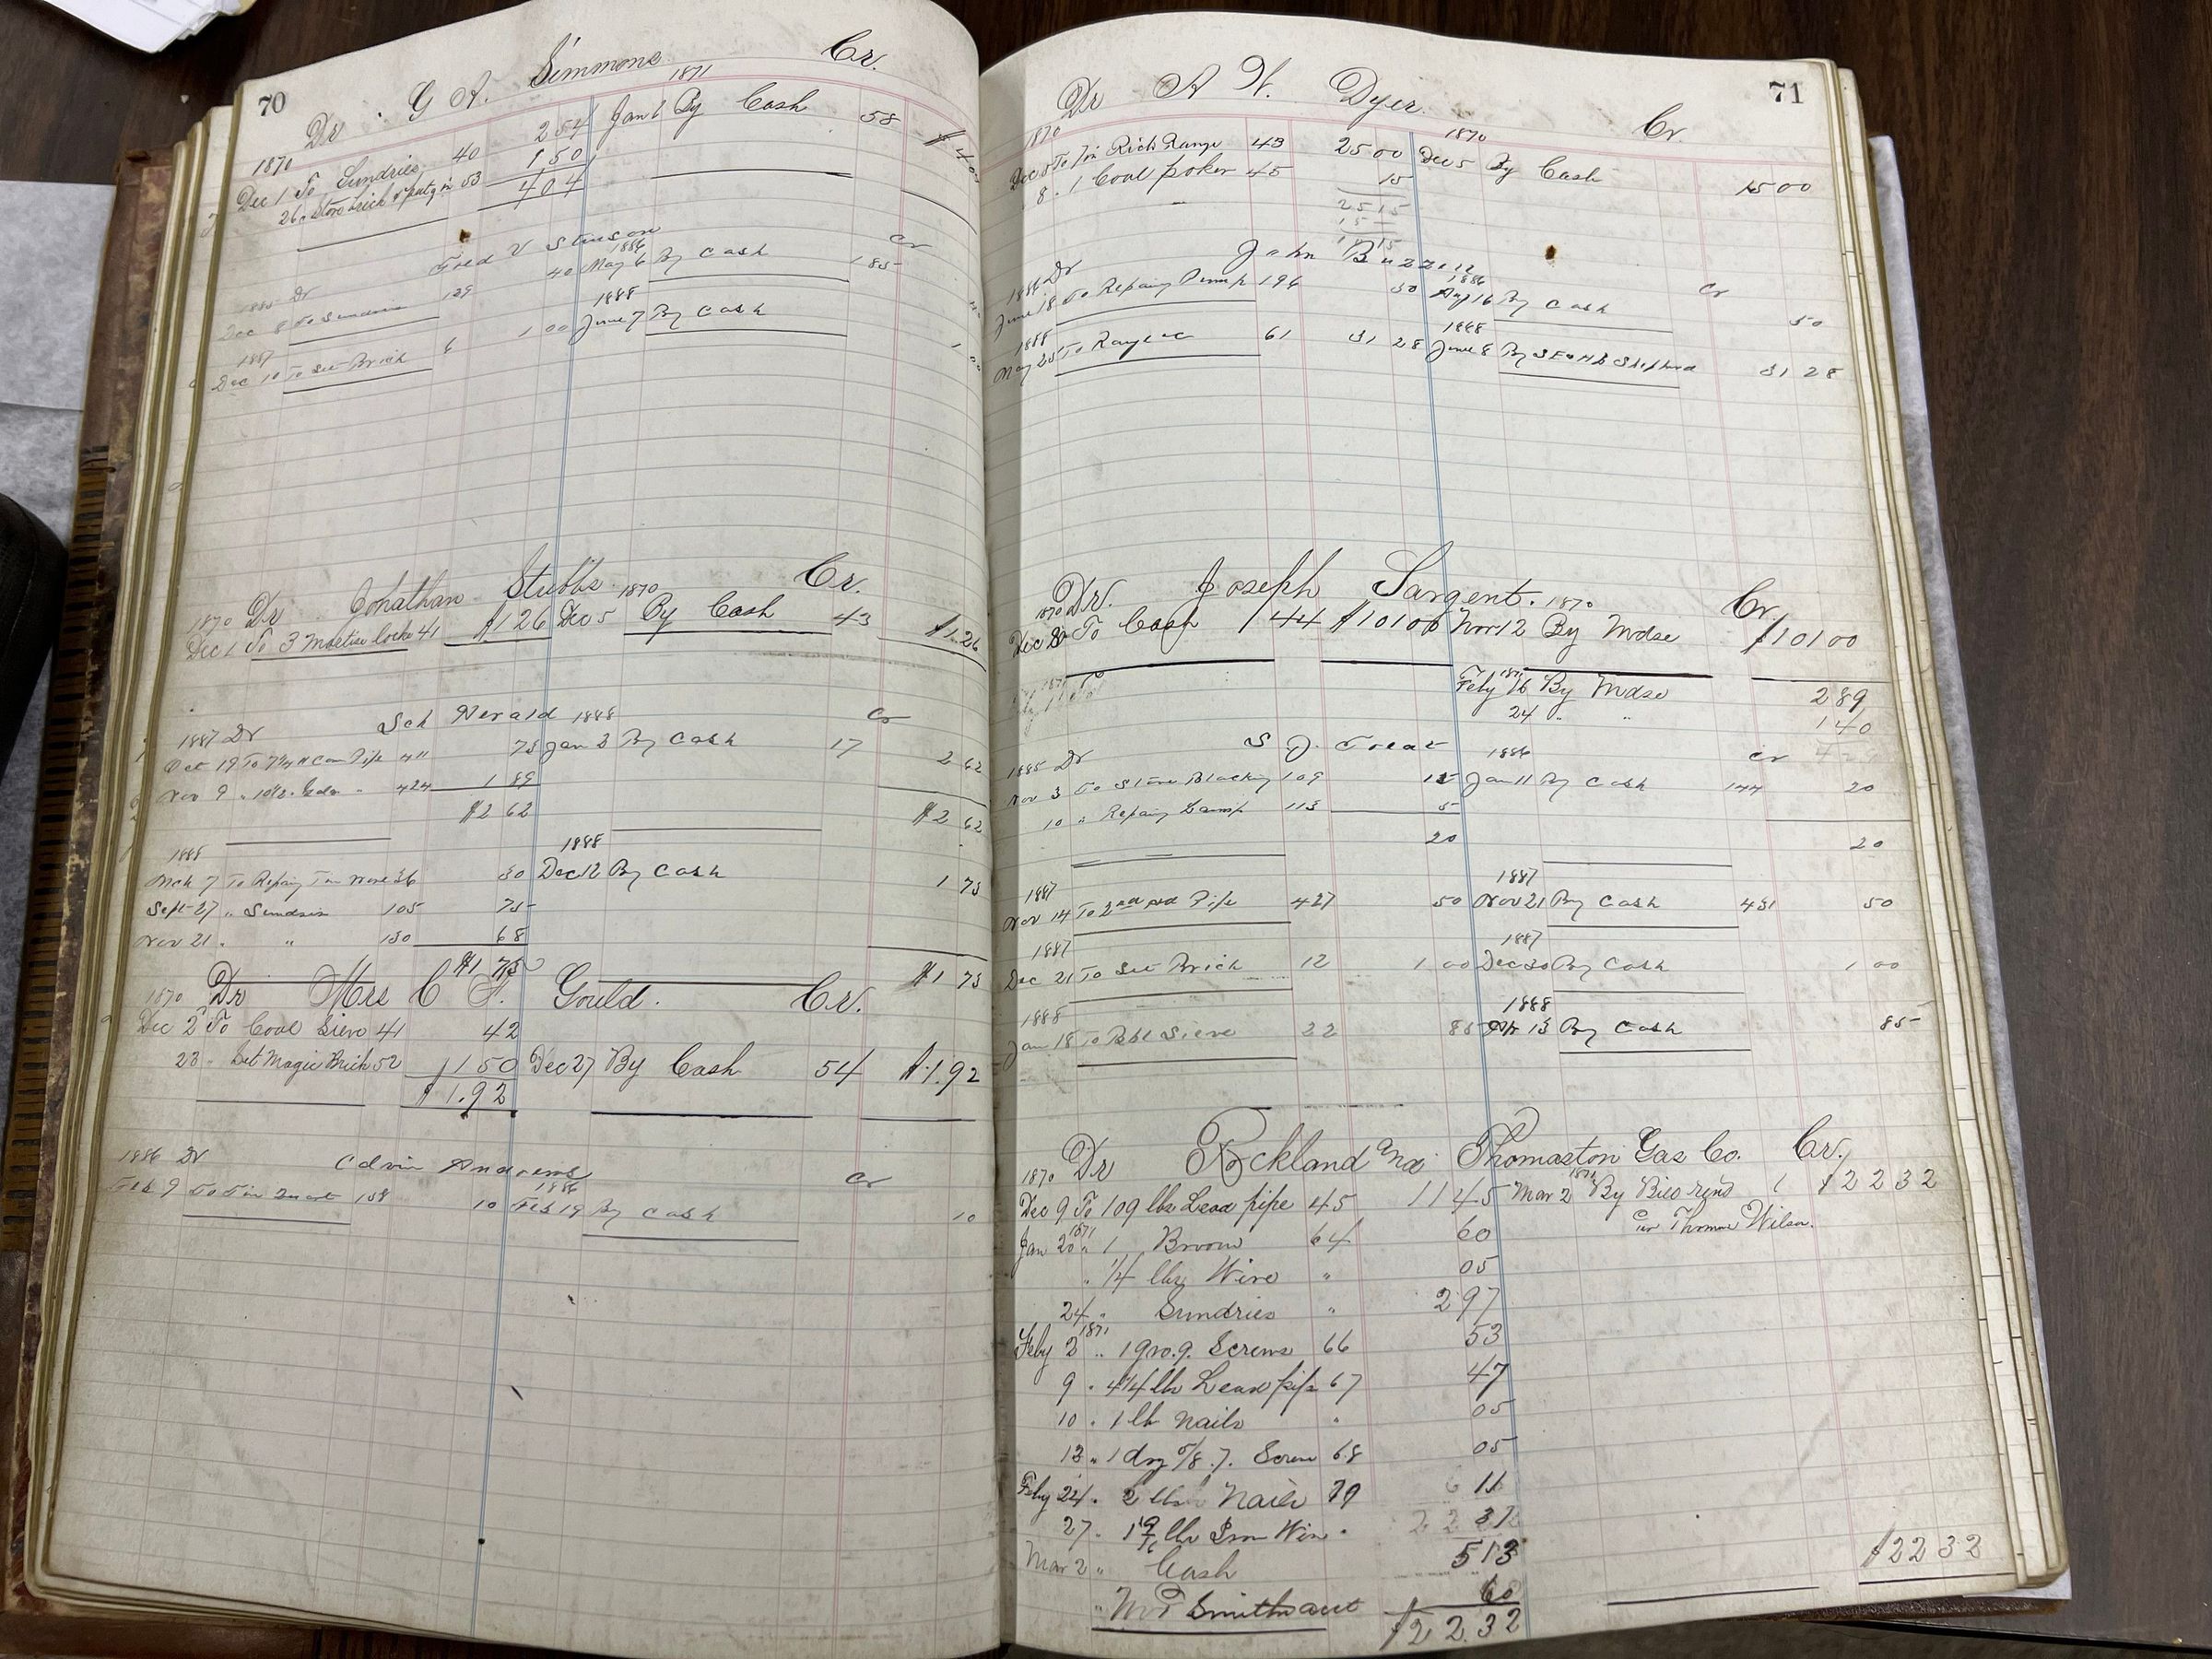 70
Dr G A. Simmons Cr.
1870 1871
Dec 1 To Sundries 40 2 54 Jan 6 By Cash 58 $ 4 0
26 " Stove brick & putg in 53 1 50
4 0 4
Fred V Stinson
1885 Dr 1886 Cr
Dec 8 To Sundries 129 40 May 6 By Cash 1 85
1887 1888
Dec 10 To Set Brick 6 1 00 June 7 By Cash 1
Dr Jonathan Stubbs Cr.
1870 1870
Dec 1 To 3 Mortise locks 41 $1 26 Dec 5 By Cash 43 $1.26
Sch Herald
1887 Dr 1888 Cr
Oct 19 To Can Pipe 411 73 Jan 3 By Cash 17 2 62
Nov 9 " 424 1 89
$2 62 $2 62
1888 1888
Mch 7 To Repairg Tin Ware 36 30 Dec 12 By Cash 1 73
Sept 27 " Sundries 105 75
Nov 21 " " 130 68
$1 73 $1 73
1870 Dr Mrs C A. Gould. Cr.
Dec 2 To Coal Sieve 41 42
23 " Set Magic Brick 52 1 50 Dec 27 By Cash 54 $1.92
$1.92
1886 Dr Edwin Andrews Cr
1886
Feb 9 To Tin Quart 158 10 Feb 19 By Cash 10
71
Dr A W. Dyer. Cr.
1870 1870
Dec 5 To Rich Range 43 25 00 Dec 5 By Cash 15 00
8 " 1 Coal poker 45 15
25 15
15
10 15
John Buzzell
1886 Dr 1886 Cr
June 18 To Repairg Pump 196 50 Aug 16 By Cash 50
1888 1888
May 25 To Range &c 61 31 28 June 8 By S E & H L Shepherd 31 28
Dr. Joseph Sargent. Cr.
1870 1870
Dec 8 To Cash 44 $101 00 Nov 12 By Mdse $101 00
1871
Feby 16 By Mdse 2 89
24 " " 1 40
S J. Treat
1885 Dr 1886 Cr
Nov 3 To Stove Blacking 109 15 Jan 11 By Cash 144 20
10 " Repairg Lamp 113 5
20 20
1887 1887
Nov 14 To 2nd hd Pipe 427 50 Nov 21 By Cash 431 50
1887 1887
Dec 21 To Set Brick 12 1 00 Dec 30 By Cash 1 00
1888 1888
Jan 18 To Bbl Sieve 22 85 Apr 13 By Cash 85
1870 Dr Rockland and Thomaston Gas Co. Cr.
1871
Dec 9 To 109 lbs Lead pipe 45 11 45 Mar 2 By Bill rend 1 $22 32
per Thomas Wilson.
1871
Jan 20 " 1 Broom 64 60
" 1/4 lbs Wire " 05
24 " Sundries " 2 97
1871
Feby 2 " 1 gro. 9. Screws 66 53
9 " 4 1/4 lbs Lead pipe 67 47
10 " 1 lb Nails " 05
13 " 1 doz 5/8. 7. Screw 68 05
Feby 24 " 2 lbs Nails 79
27 " lbs Iron Wire "
Mar 2 " Cash 5 13
" Smiths acct 60
$22 32 $22 32